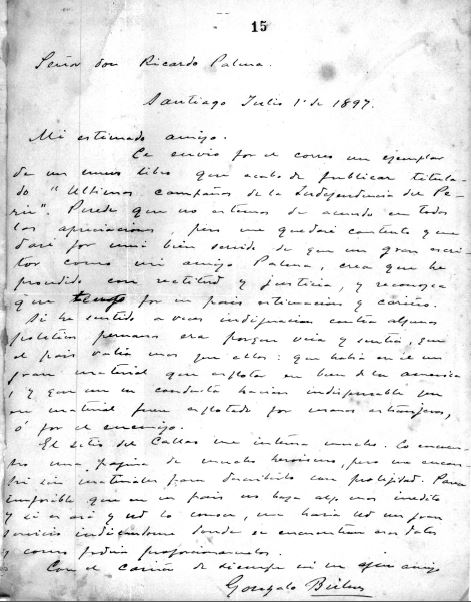 15
Señor don Ricardo Palma.
Santiago Julio 1º de 1897.
Mi estimado amigo.
Le envio por el correo un ejemplar
de un nuevo libro que acabo de publicar titula-
do "Ultimas campañas de la Independencia del Pe-
rú". Puede que no estemos de acuerdo en todas
las apreciaciones, pero me quedaré contento y me
daré por mui bien servido de que un gran escri-
tor como mi amigo Palma, crea que he
procedido con rectitud y justicia, y reconozca
que tengo por su pais estimacion y cariño.
Si he sentido a veces indignacion contra algunos
politicos peruanos era porque veia y sentia, que
el pais valia mas que ellos: que habia en él un
gran material que esplotar en bien de la America
y que con su conducta hacian indispensable que
ese material fuera esplotado por manos estranjeras,
ó por el enemigo.
El sitio del Callao me interesa mucho. Lo encuen-
tro una pájina de mucho heroismo, pero me encon-
tré sin materiales para describirlo con prolijidad. Parece
imposible que en su pais no haya algo mas inedito
y si es asi y Ud lo conoce, me haria Ud un gran
servicio indicandome donde se encuentran esos datos
y como podria proporcionarmelos.
Con el cariño de siempre su amigo
Gonzalo Bulnes